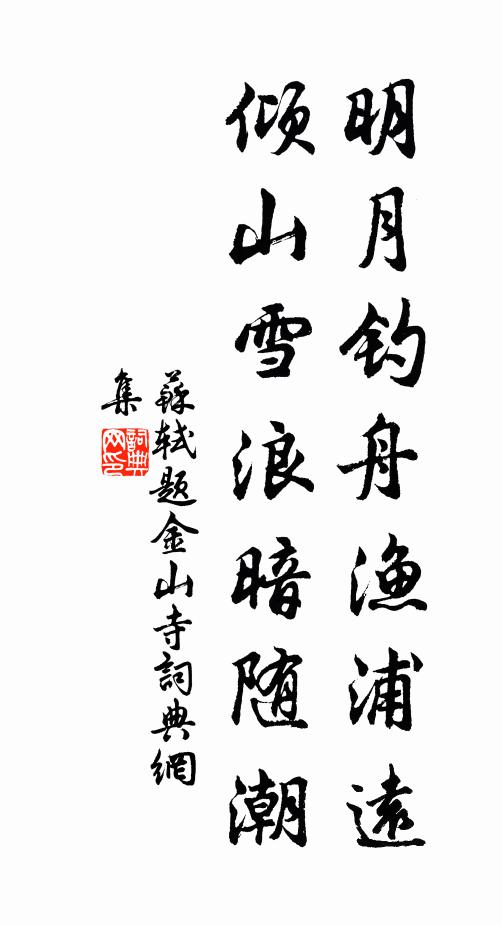 明月钓舟渔浦遠
倾山雪浪暗随潮
蘇轼题金山寺詞典網
集
詞典
网印